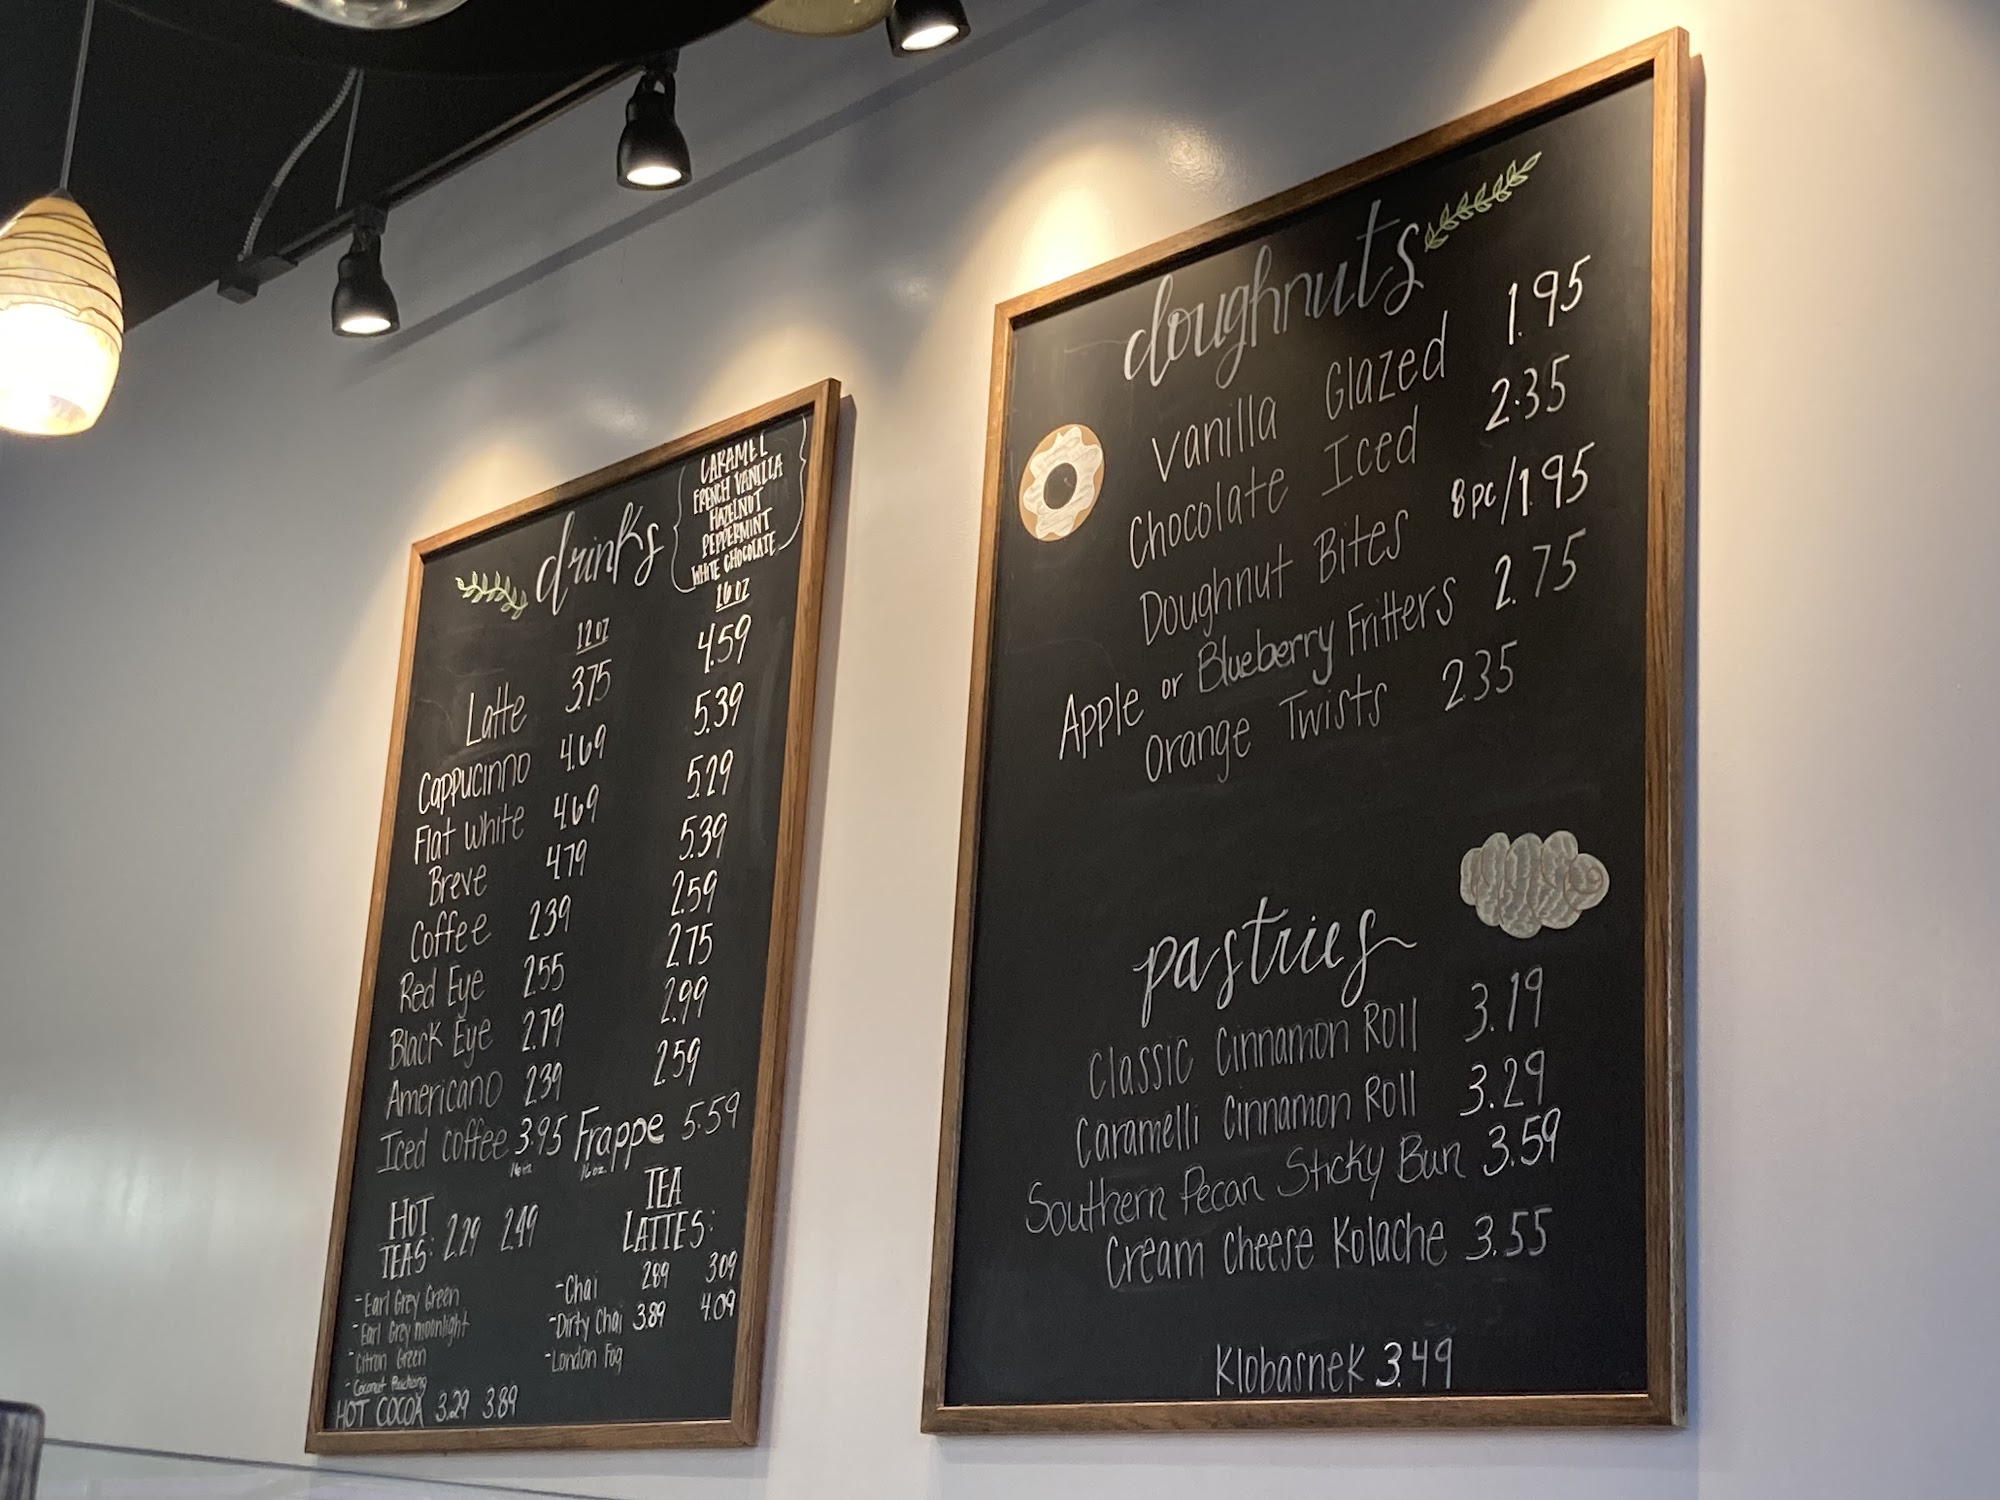 drinks
CARAMEL
FRENCH VANILLA
HAZELNUT
PEPPERMINT
WHITE CHOCOLATE
12 OZ 16 OZ
Latte 3.75 4.59
Cappucinno 4.69 5.39
Flat White 4.69 5.29
Breve 4.79 5.39
Coffee 2.39 2.59
Red Eye 2.55 2.75
Black Eye 2.79 2.99
Americano 2.39 2.59
Iced coffee 3.95 Frappe 5.59
16 oz 16 oz.
HOT
TEAS: 2.29 2.49
- Earl Grey Green
- Earl Grey moonlight
- Citron Green
- Coconut
HOT COCOA 3.29 3.89
TEA
LATTES:
- Chai 2.89 3.09
- Dirty Chai 3.89 4.09
- London Fog
doughnuts
Vanilla Glazed 1.95
Chocolate Iced 2.35
Doughnut Bites 8pc/1.95
Apple or Blueberry Fritters 2.75
Orange Twists 2.35
pastries
Classic Cinnamon Roll 3.19
Caramelli Cinnamon Roll 3.29
Southern Pecan Sticky Bun 3.59
Cream Cheese Kolache 3.55
Klobasnek 3.49